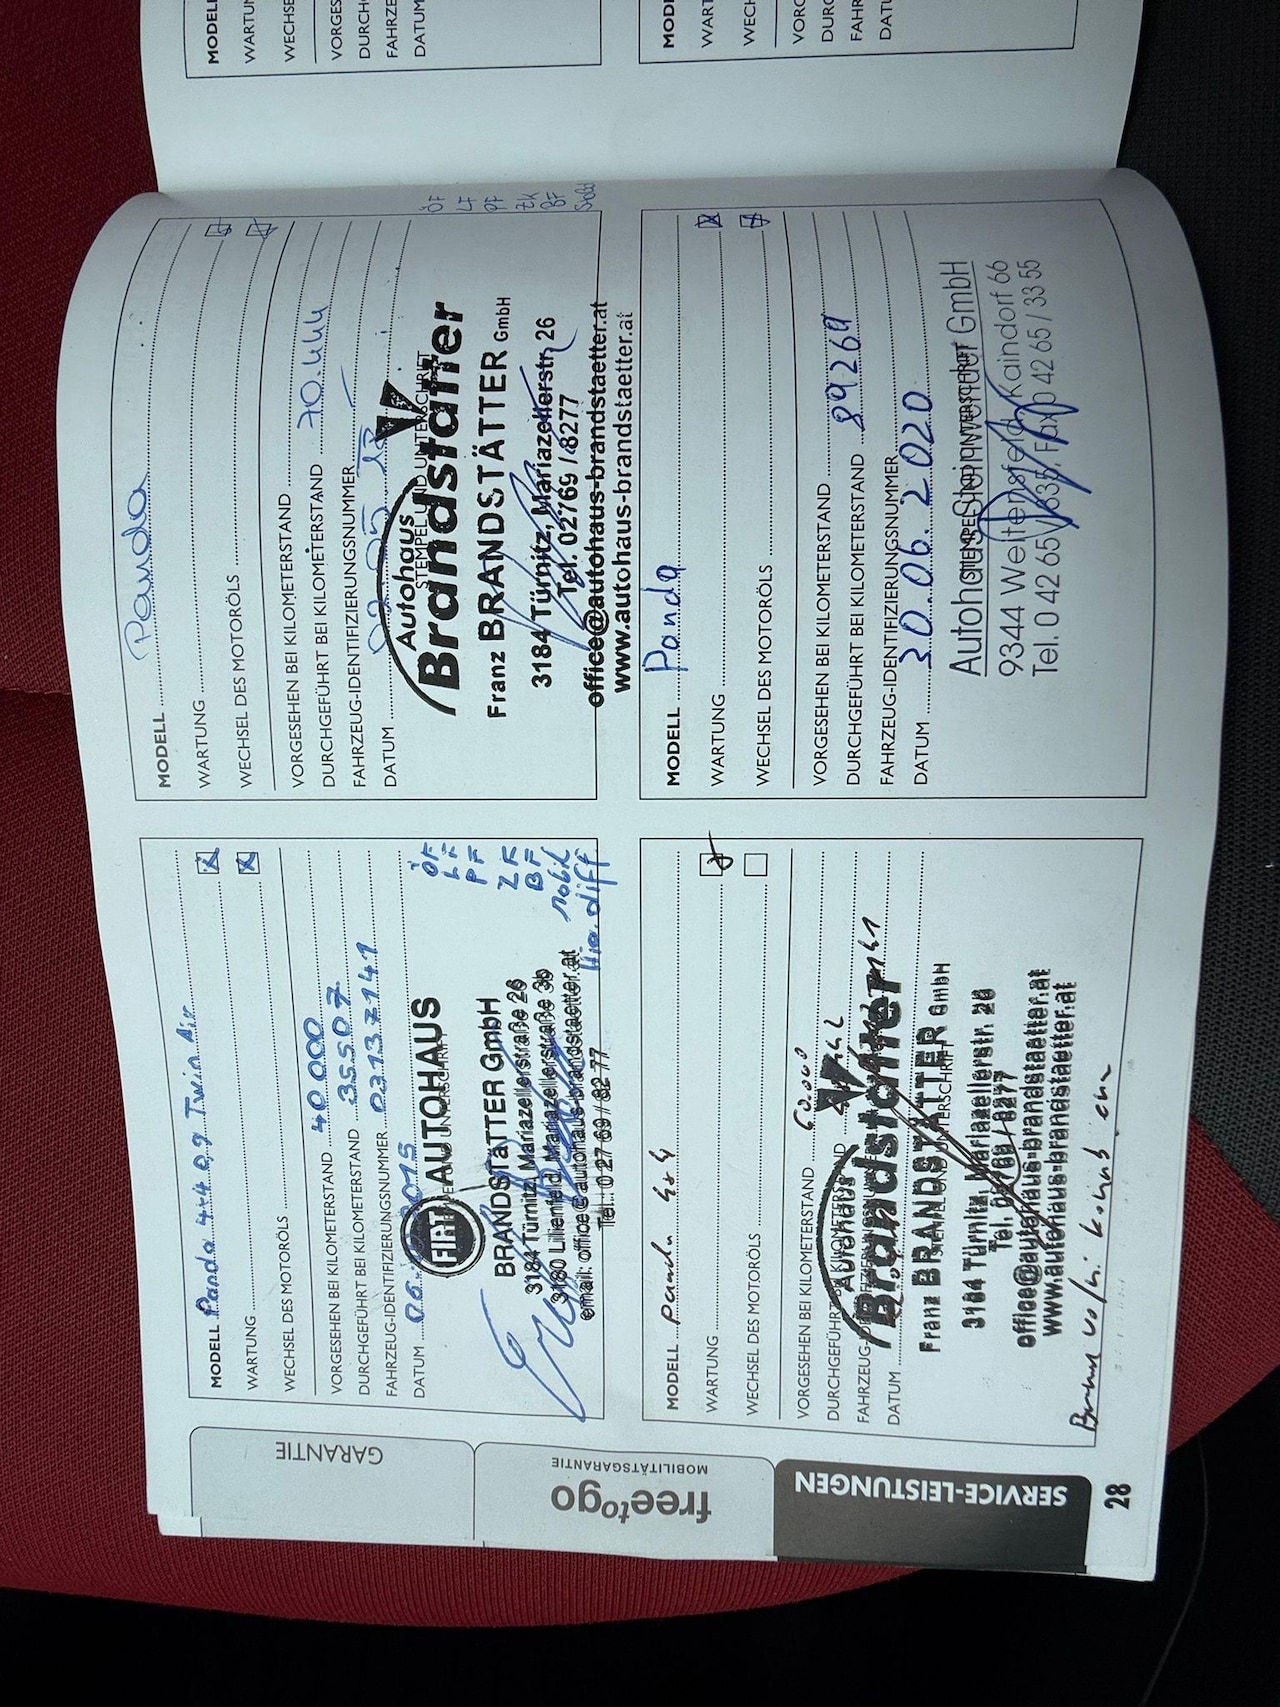 MODELL
WARTUN
WECHSE
VORGES
DURCHG
FAHRZE
DATUM
MODE
WART
WECH
VORG
DUR
FAHR
DATU
MODELL Panda 4x4 0,9 Twin Air
WARTUNG
WECHSEL DES MOTORÖLS
VORGESEHEN BEI KILOMETERSTAND 40 000
DURCHGEFÜHRT BEI KILOMETERSTAND 35507
FAHRZEUG-IDENTIFIZIERUNGSNUMMER 03137141
DATUM
ÖF
PF
ZK
BF
diff
FIAT AUTOHAUS
BRANDSTÄTTER GmbH
3184 Türnitz, Mariazellerstraße 26
3180 Lilienfeld, Mariazellerstraße 3b
email: office@autohaus-brandstaetter.at
Tel.: 0 27 69 / 82 77
MODELL Panda
WARTUNG
WECHSEL DES MOTORÖLS
VORGESEHEN BEI KILOMETERSTAND
DURCHGEFÜHRT BEI KILOMETERSTAND 70.444
FAHRZEUG-IDENTIFIZIERUNGSNUMMER
DATUM
STEMPEL UND UNTERSCHRIFT
ÖF
LF
PF
ZK
BF
Autohaus
Brandstätter
Franz BRANDSTÄTTER GmbH
3184 Türnitz, Mariazellerstr. 26
Tel. 02769 / 8277
office@autohaus-brandstaetter.at
www.autohaus-brandstaetter.at
MODELL Panda 4x4
WARTUNG
WECHSEL DES MOTORÖLS
VORGESEHEN BEI KILOMETERSTAND 60.000
DURCHGEFÜHRT BEI KILOMETERSTAND
DATUM
Autohaus
Brandstätter
Franz BRANDSTÄTTER GmbH
3184 Türnitz, Mariazellerstr. 26
Tel. 02769 / 8277
office@autohaus-brandstaetter.at
www.autohaus-brandstaetter.at
MODELL Panda
WARTUNG
WECHSEL DES MOTORÖLS
VORGESEHEN BEI KILOMETERSTAND
DURCHGEFÜHRT BEI KILOMETERSTAND 89269
FAHRZEUG-IDENTIFIZIERUNGSNUMMER
DATUM 30.06.2020
Autohaus Steinwender GmbH
9344 Weitensfeld, Kaindorf 66
Tel. 0 42 65 / 335, Fax 0 42 65 / 33 55
GARANTIE
freetogo
MOBILITÄTSGARANTIE
SERVICE-LEISTUNGEN
28